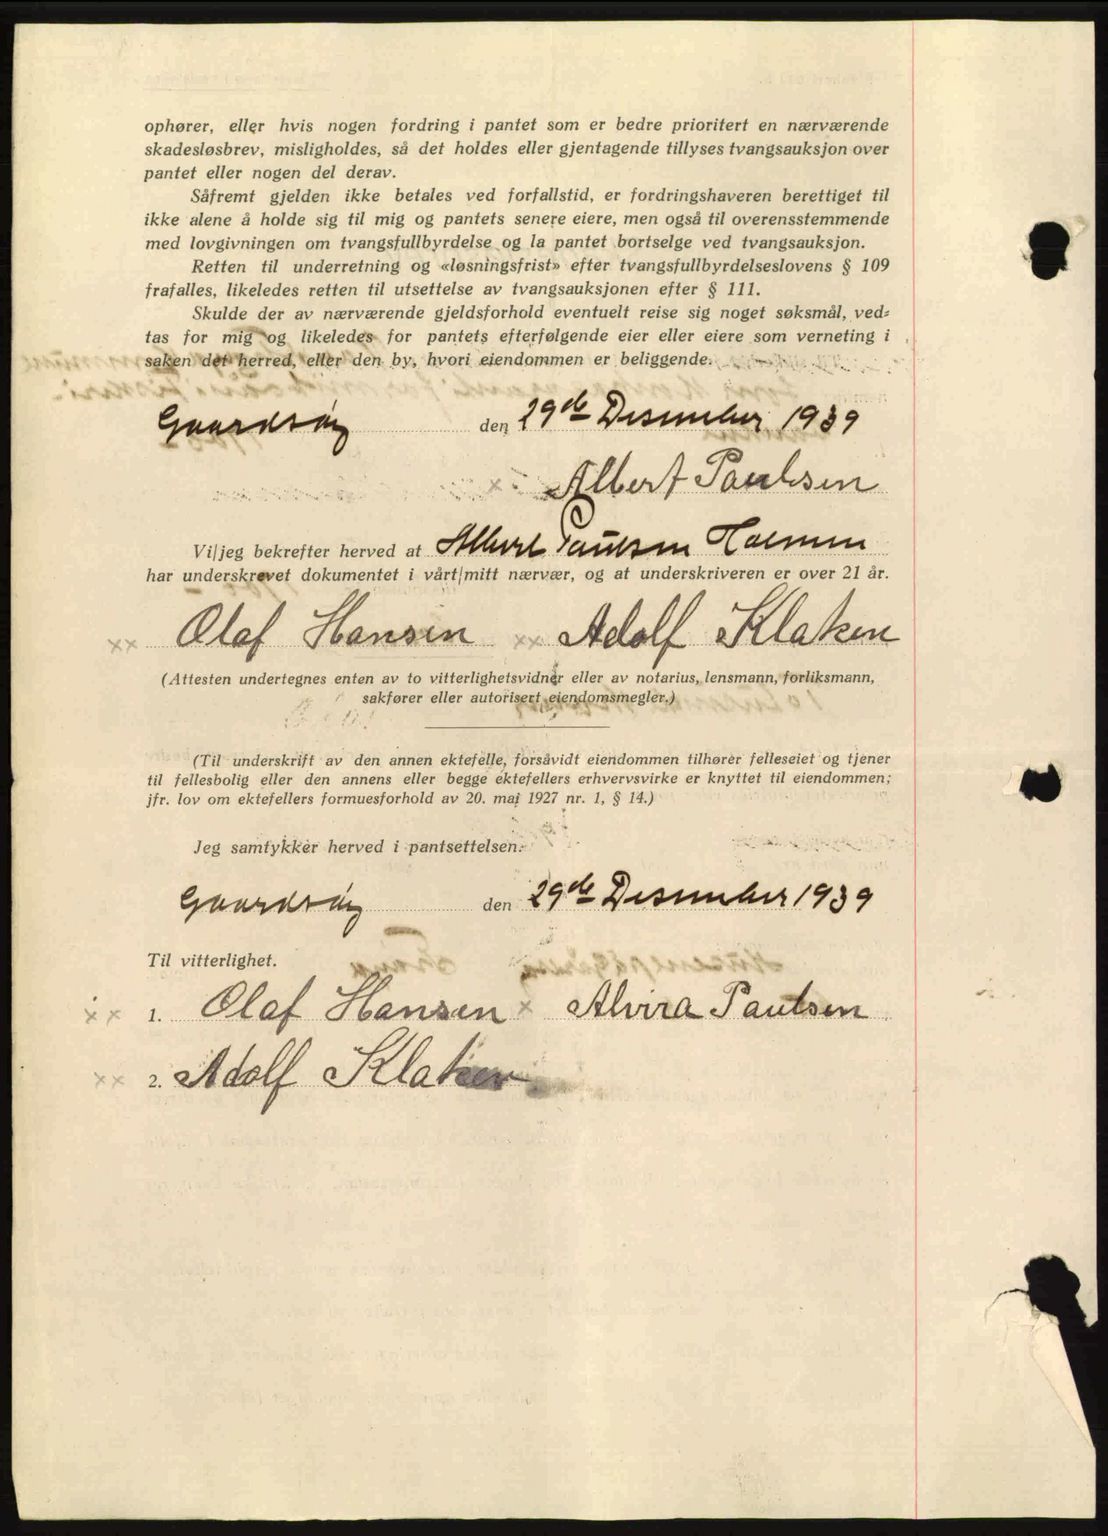 ophører, eller hvis nogen fordring i pantet som er bedre prioritert en nærværende
skadesløsbrev, misligholdes, så det holdes eller gjentagende tillyses tvangsauksjon over
pantet eller nogen del derav.
Såfremt gjelden ikke betales ved forfallstid, er fordringshaveren berettiget til
ikke alene å holde sig til mig og pantets senere eiere, men også til overensstemmende
med lovgivningen om tvangsfullbyrdelse og la pantet bortselge ved tvangsauksjon.
Retten til underretning og «løsningsfrist» efter tvangsfullbyrdelseslovens § 109
frafalles, likeledes retten til utsettelse av tvangsauksjonen efter § 111.
Skulde der av nærværende gjeldsforhold eventuelt reise sig noget søksmål, ved-
tas for mig og likeledes for pantets efterfølgende eier eller eiere som verneting i
saken det herred, eller den by, hvori eiendommen er beliggende.
Gaardsöy den 29de Desember 1939
x Albert Paulsen
Vi/jeg bekrefter herved at Albert Paulsen Holmen
har underskrevet dokumentet i vårt/mitt nærvær, og at underskriveren er over 21 år.
xx Olaf Hansen xx Adolf Klaken
(Attesten undertegnes enten av to vitterlighetsvidner eller av notarius, lensmann, forliksmann,
sakfører eller autorisert eiendomsmegler.)
(Til underskrift av den annen ektefelle, forsåvidt eiendommen tilhører felleseiet og tjener
til fellesbolig eller den annens eller begge ektefellers erhvervsvirke er knyttet til eiendommen;
jfr. lov om ektefellers formuesforhold av 20. mai 1927 nr. 1, § 14.)
Jeg samtykker herved i pantsettelsen.
Gaardsöy den 29de Desember 1939
Til vitterlighet.
xx 1. Olaf Hansen x Alvira Paulsen
xx 2. Adolf Klaken